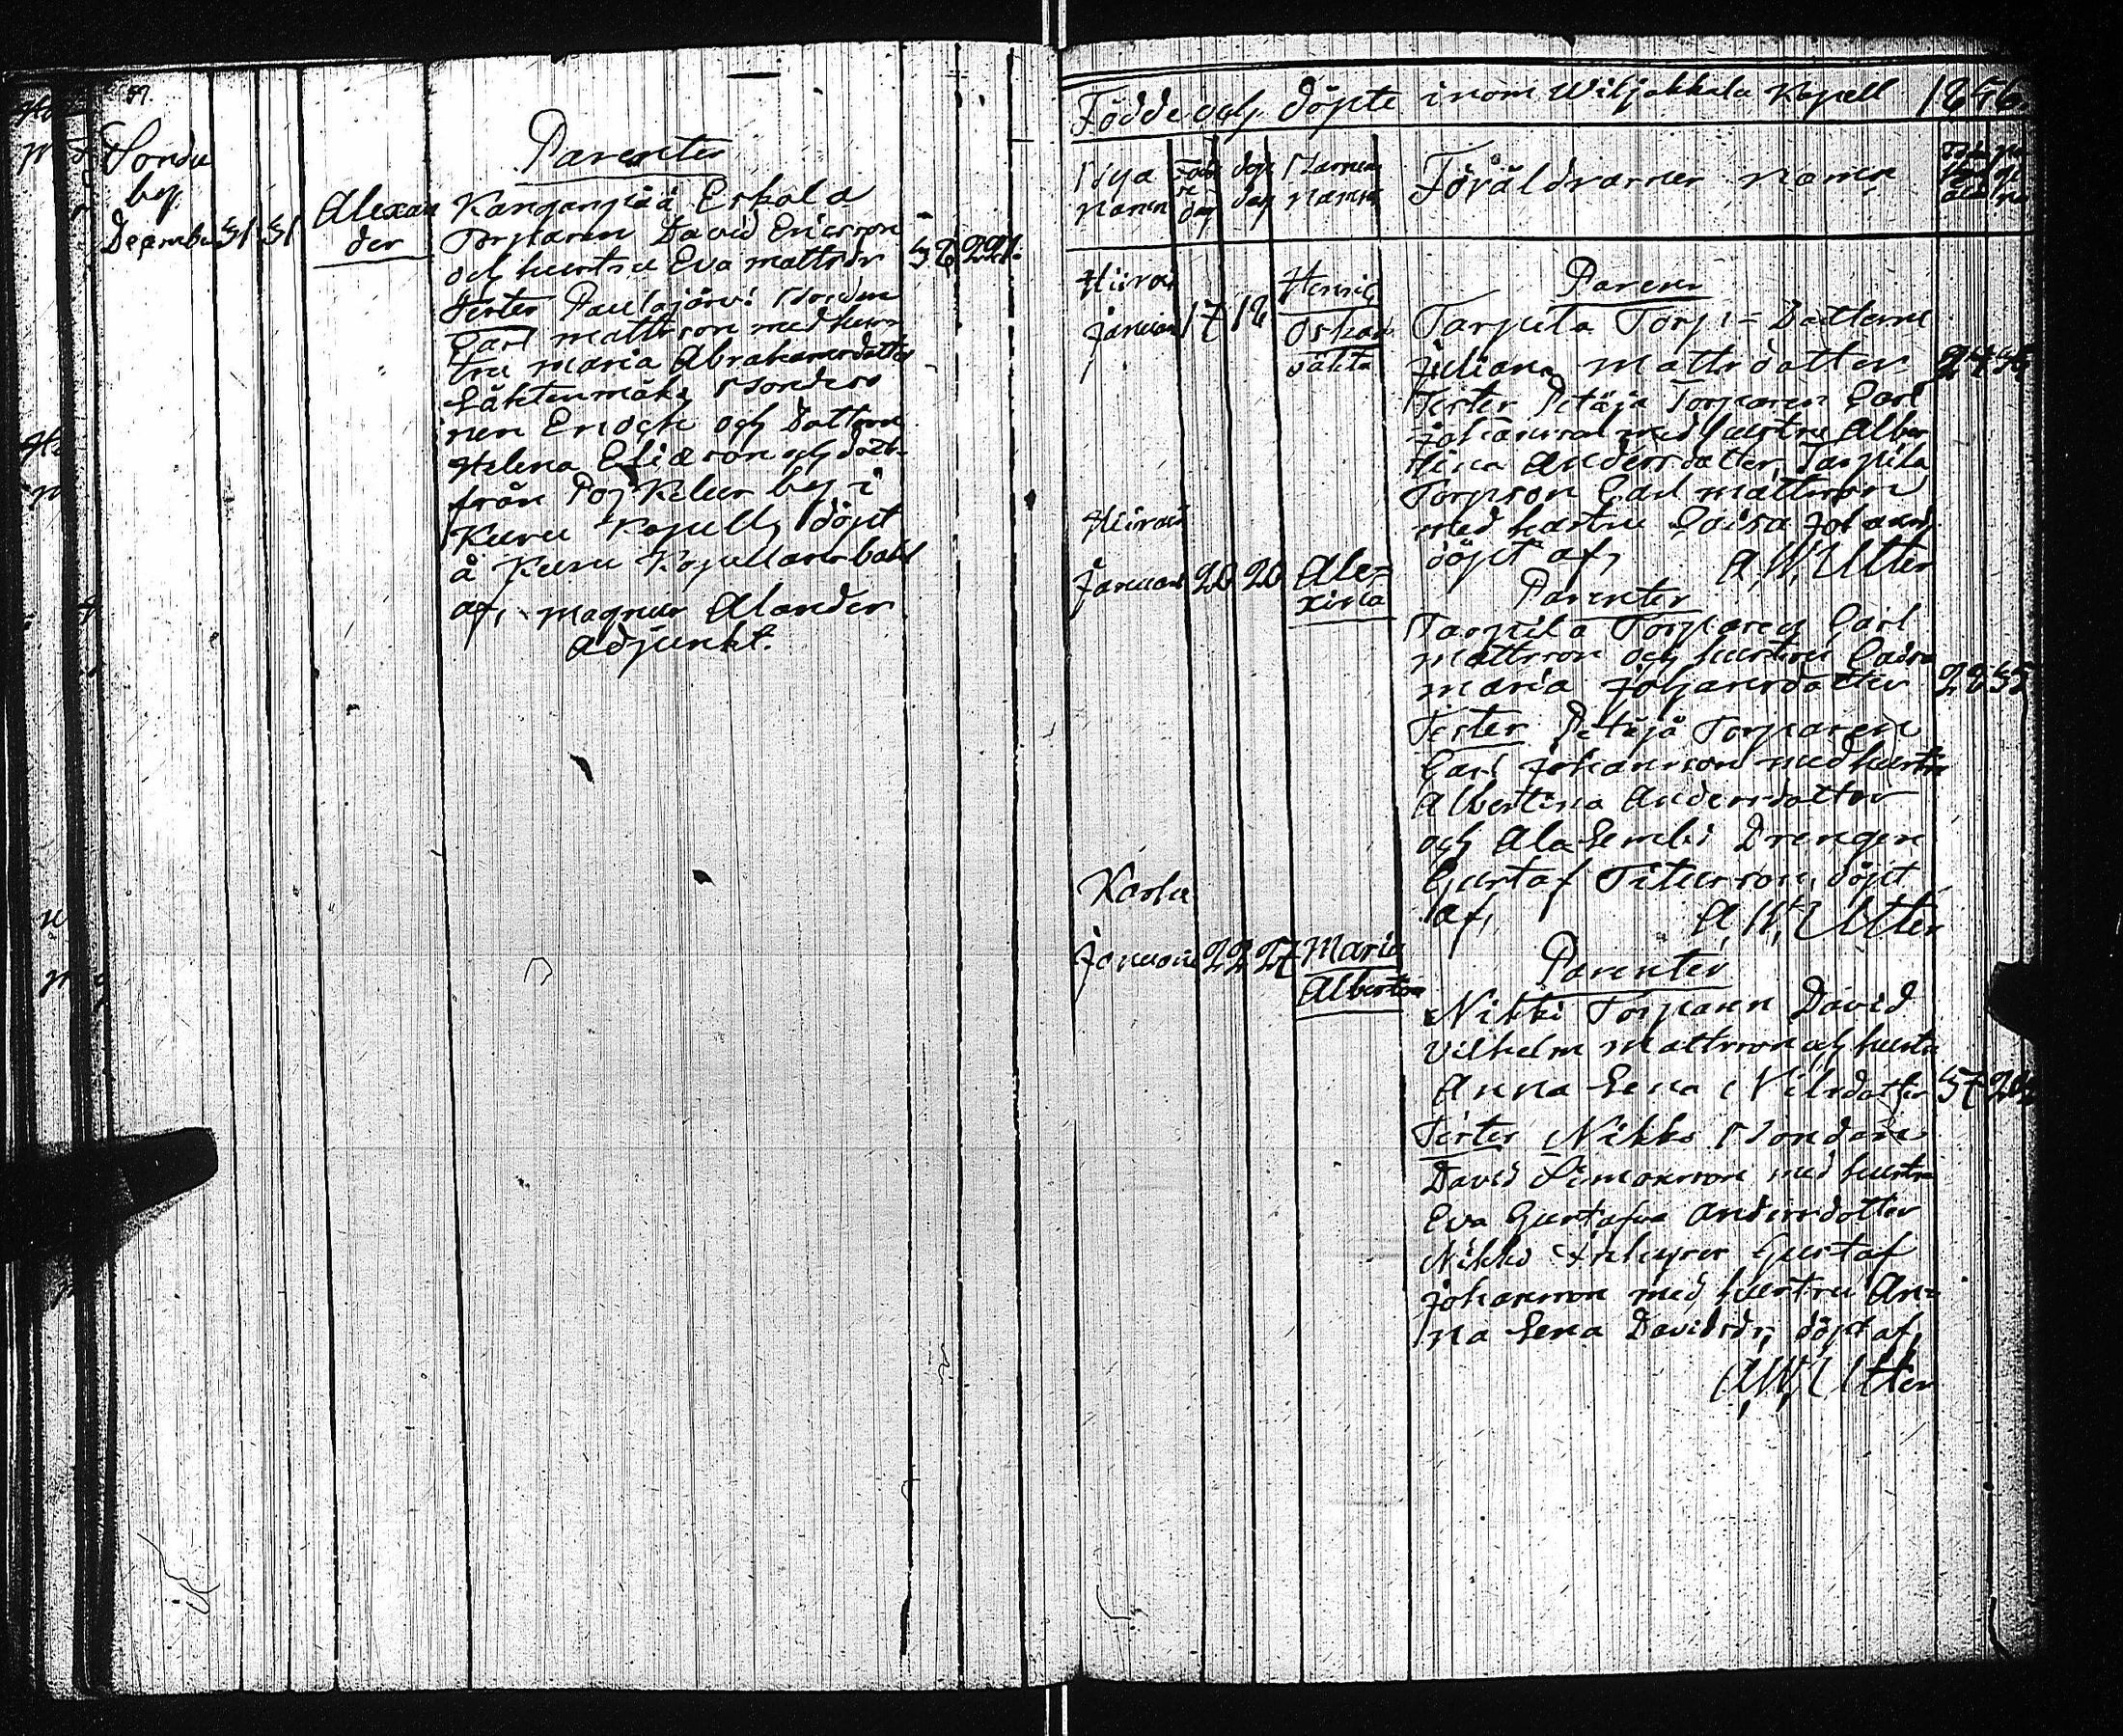 57.
Sondu
by
December 31 31
Alexan
der
Parenter
Kanganpää Eskola
Torparen David Ericsson
och hustru Eva Mattsdr
38 221.
Tester Paulsjärvi Bonden
Carl Mattsson med hus
tru Maria Abrahamsdotter
Lähtenmäki Bondeso
nen Enock och Dottern
Helena Eliæson och dotr
från Pojkelus by i
Kuru Kapell, döpt
å Kuru Kapellarebohl
af, Magnus Alander
Adjunkt.
Födde och döpte inom Wiljakkala Kapell 1856
Bya
namn
Föd
se
dag
döp
dag
Barnens
namn
Föräldrarnes namn
Hiirois
Januari 17 18
Henric
Oskar
oäkta
Parens
Tarpila Torp-Dottern
Juliana Mattsdotter
Tester Petäjä Torparen Carl
Johansson med hustru Alber
tina Andersdotter, Tarpila
Torpson Carl Mattsson
med hustru Caisa Johansd.
döpt af, A. W. Utter
Hiirois
Januari 20 20
Ale=
xina
Parenter
Tarpila Torparen Carl
Mattsson och hustru Caisa
Maria Johansdotter 28 35
Tester Petäjä Torparen
Carl Johansson med hustru
Albertina Andersdotter
och Ala Lembi Drengen
Gustaf Titusson, döpt
af, A. W. Utter
Karhe
Januari 22 27
Maria
Albertina
Parenter
Nikki Torparen David
Vilhelm Mattsson och hustru
Anna Lena Nilsdotter
Tester Nikko Bonden
David Simonsson med hustru
Eva Gustafva Andersdotter
Nikko Inhyses Gustaf
Johansson med hustru An=
na Lena Davidsdr, döpt af
A. W. Utter